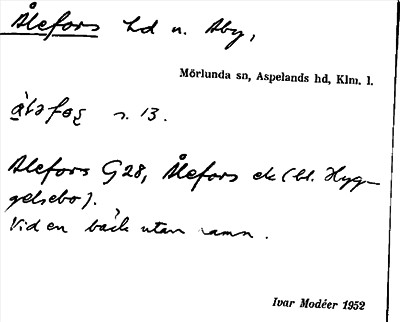 Ålefors hd n. Åby,
Mörlunda sn, Aspelands hd, Klm. l.
s. 13.
Alefors G28, Ålefors ek (bl. Hyg-
gelsebo).
Vid en bäck utan namn.
Ivar Modéer 1952